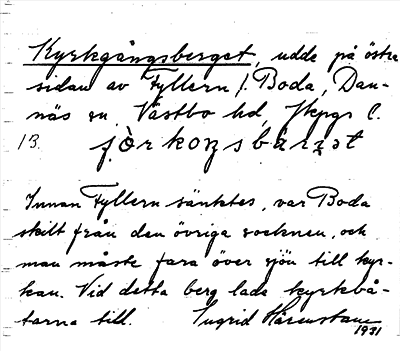 Kyrkgångsberget, udde på östra
sidan av Fyllern /. Boda, Dan-
näs sn, Västbo hd, Jkpgs l.
13.
Innan Fyllern sänktes, var Boda
skilt från den övriga socknen, och
man måste fara över sjön till kyr-
kan. Vid detta berg lade kyrkbå-
tarna till. Ingrid Härenstam
1931